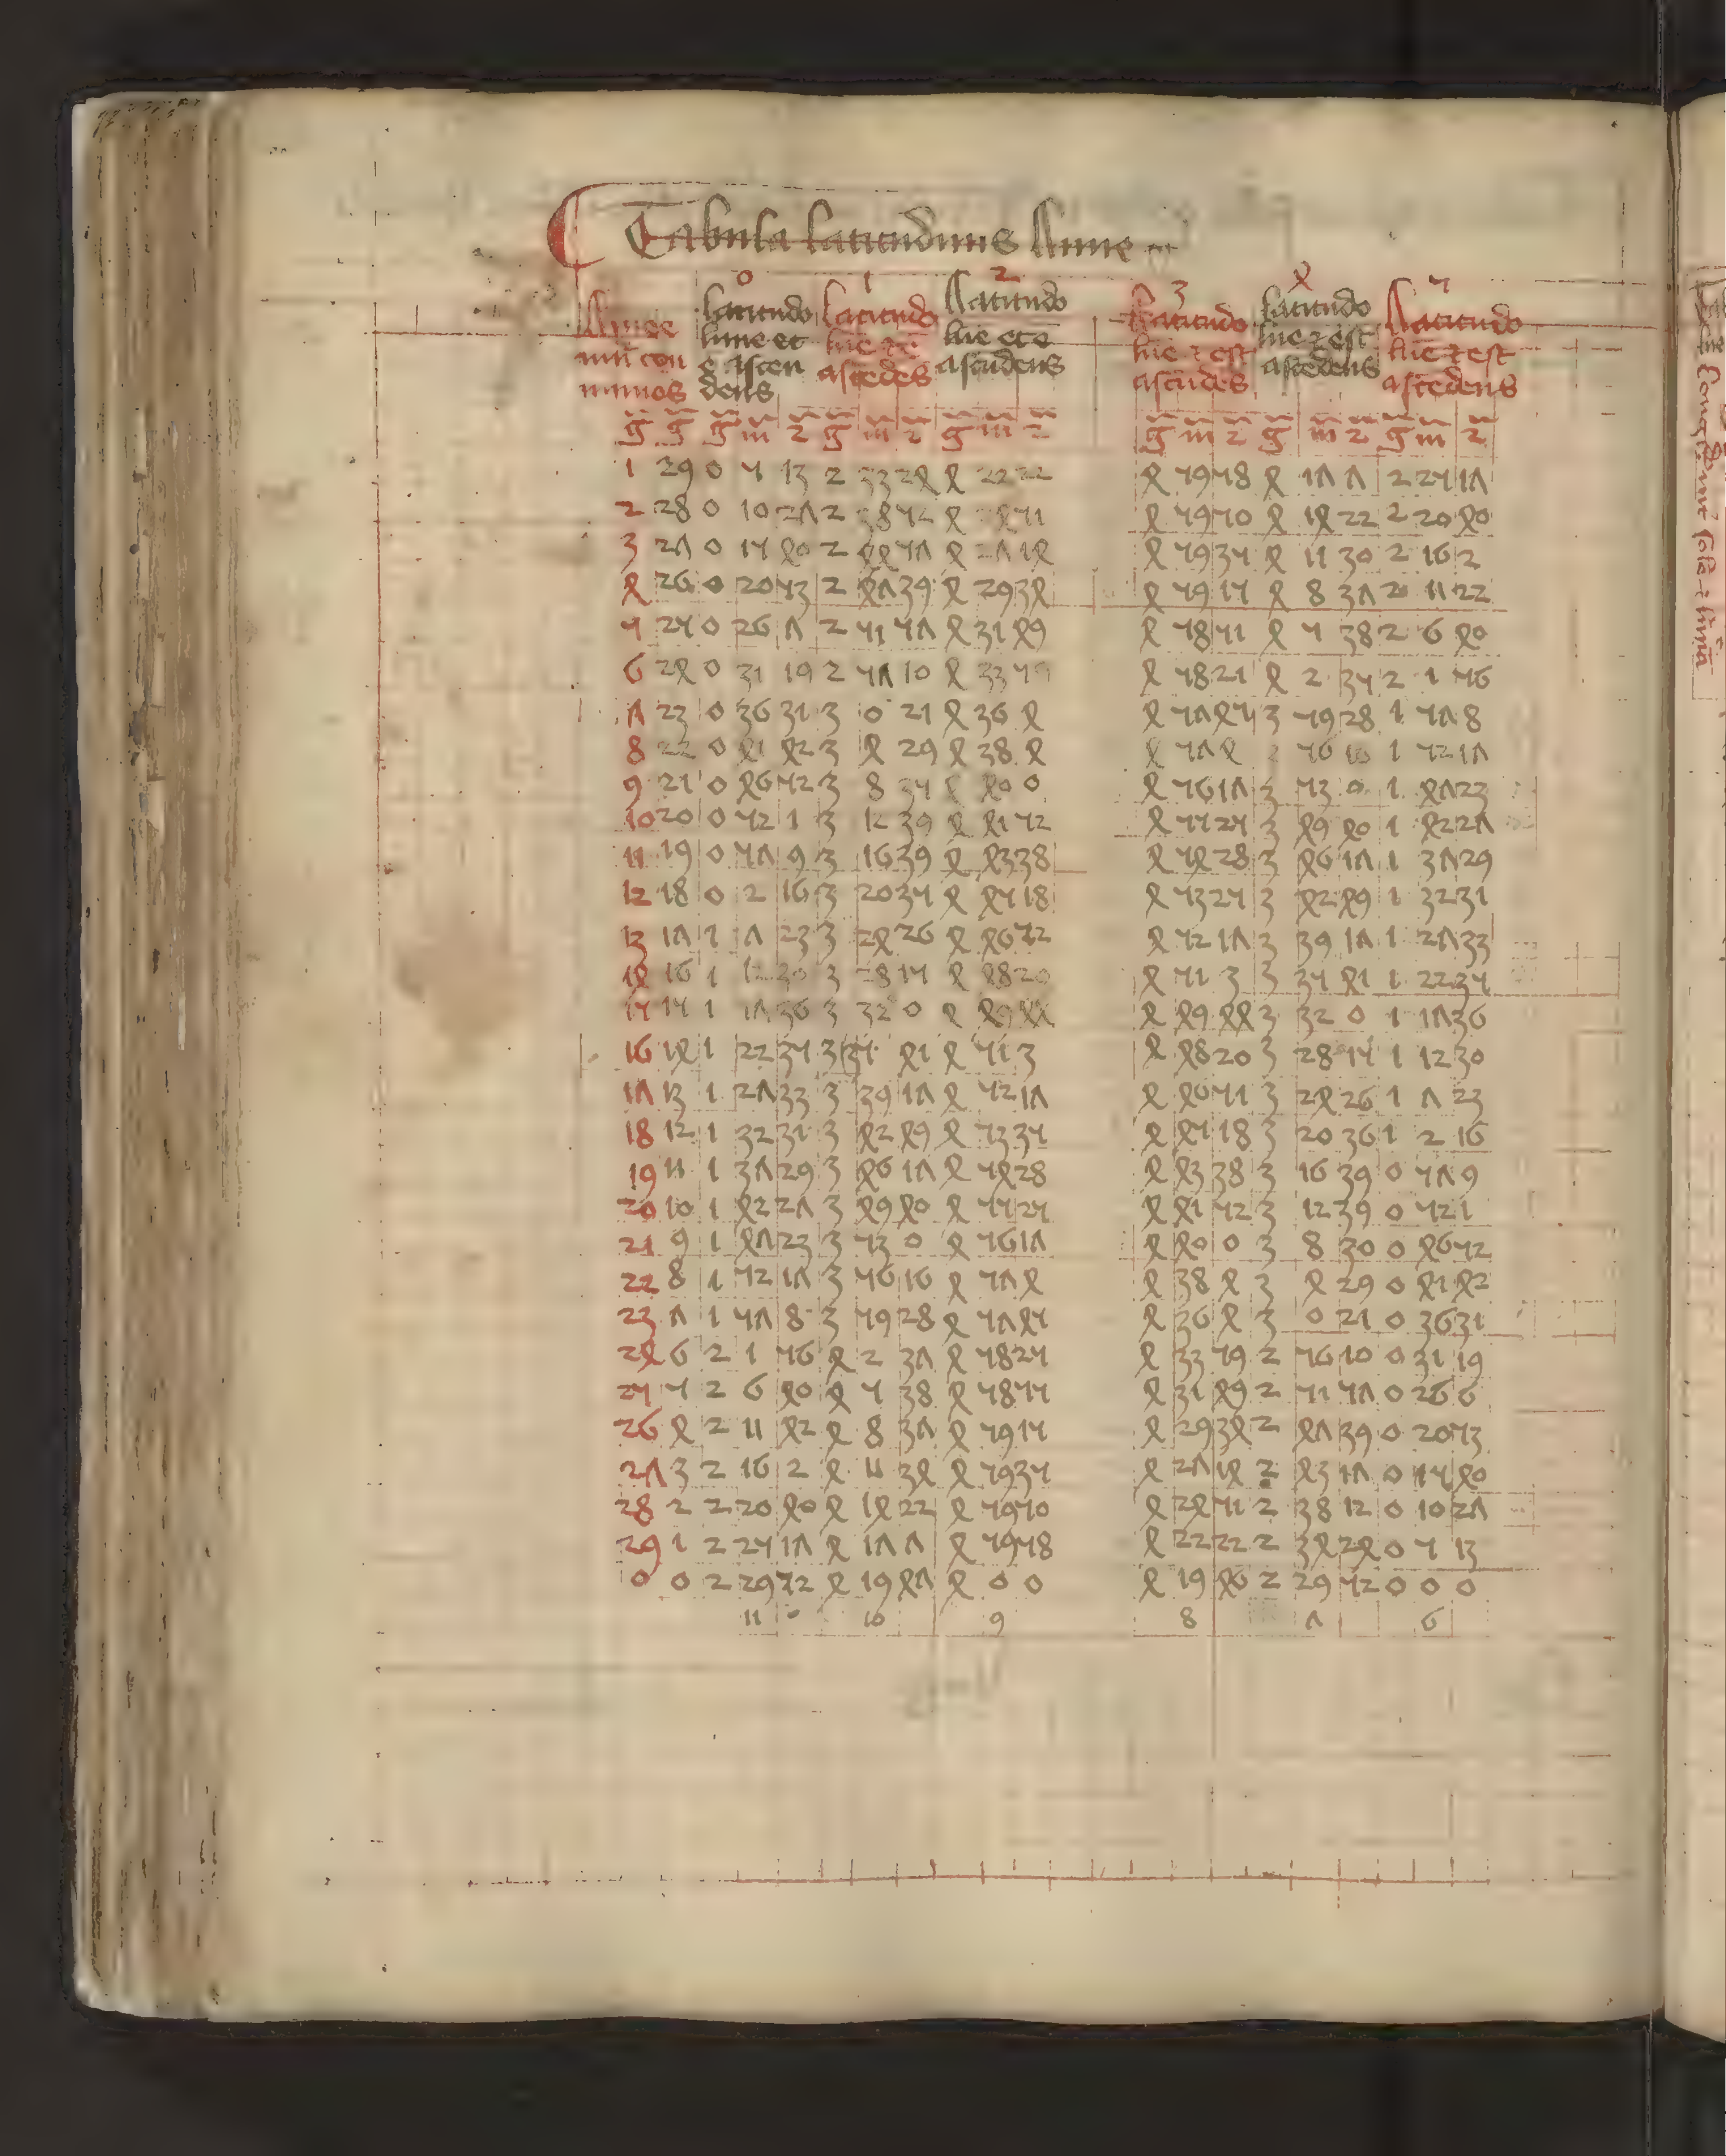 Tabula latitudinis lune
0 1 2 3 4 5
Latitudo Latitudo Latitudo Latitudo Latitudo Latitudo
lune et lūe lūe lūe et est lūe et est lūe et est
ascen dens ascēdēs ascēdens ascēdēs ascēdens ascēdens
g g g m 2 g m 2 g m 2 g m 2 g m 2 g m 2
1 29 0 5 13 2 33 24 4 22 22 4 59 58 4 17 7 2 25 17
2 28 0 10 27 2 38 52 4 51 4 59 50 4 14 22 2 20 40
3 27 0 15 40 2 44 57 4 27 14 4 59 35 4 11 30 2 16 2
4 26 0 20 53 2 47 39 4 29 34 4 59 15 4 8 37 2 11 22
5 25 0 26 7 2 51 57 4 31 49 4 58 51 4 5 38 2 6 40
6 24 0 31 19 2 57 10 4 33 59 4 58 21 4 2 35 2 1 56
7 23 0 36 31 3 0 21 4 36 4 4 57 45 3 59 28 1 57 8
8 22 0 41 42 3 4 29 4 38 4 4 57 4 3 56 16 1 52 17
9 21 0 46 52 3 8 35 4 40 0 4 56 17 3 53 0 1 47 23
10 20 0 52 1 3 12 39 4 41 52 4 55 25 3 49 40 1 42 27
11 19 0 57 9 3 16 39 4 43 38 4 54 28 3 46 17 1 37 29
12 18 0 2 16 3 20 35 4 45 18 4 53 25 3 42 49 1 32 31
13 17 1 7 23 3 24 26 4 46 52 4 52 17 3 39 17 1 27 33
14 16 1 12 30 3 28 15 4 48 20 4 51 3 3 35 41 1 22 35
15 15 1 17 36 3 32 0 4 49 44 4 49 44 3 32 0 1 17 36
16 14 1 22 35 3 35 41 4 51 3 4 48 20 3 28 15 1 12 30
17 13 1 27 33 3 39 17 4 52 17 4 46 51 3 24 26 1 7 23
18 12 1 32 31 3 42 49 4 53 35 4 45 18 3 20 36 1 2 16
19 11 1 37 29 3 46 17 4 54 28 4 43 38 3 16 39 0 57 9
20 10 1 42 27 3 49 40 4 55 25 4 41 52 3 12 39 0 52 1
21 9 1 47 23 3 53 0 4 56 17 4 40 0 3 8 30 0 46 52
22 8 1 52 17 3 56 16 4 57 4 4 38 4 3 4 29 0 41 42
23 7 1 57 8 3 59 28 4 57 45 4 36 4 3 0 21 0 36 31
24 6 2 1 56 4 2 37 4 58 25 4 33 59 2 56 10 0 31 19
25 5 2 6 40 4 5 38 4 58 55 4 31 49 2 51 57 0 26 6
26 4 2 11 42 4 8 37 4 59 15 4 29 34 2 47 39 0 20 53
27 3 2 16 2 4 11 34 4 59 35 4 27 14 2 43 17 0 15 40
28 2 2 20 40 4 14 22 4 59 50 4 24 51 2 38 12 0 10 27
29 1 2 25 17 4 17 7 4 59 58 4 22 22 2 34 24 0 5 13
0 0 2 29 52 4 19 47 4 0 0 4 19 46 2 29 52 0 0 0
11 10 9 8 7 6